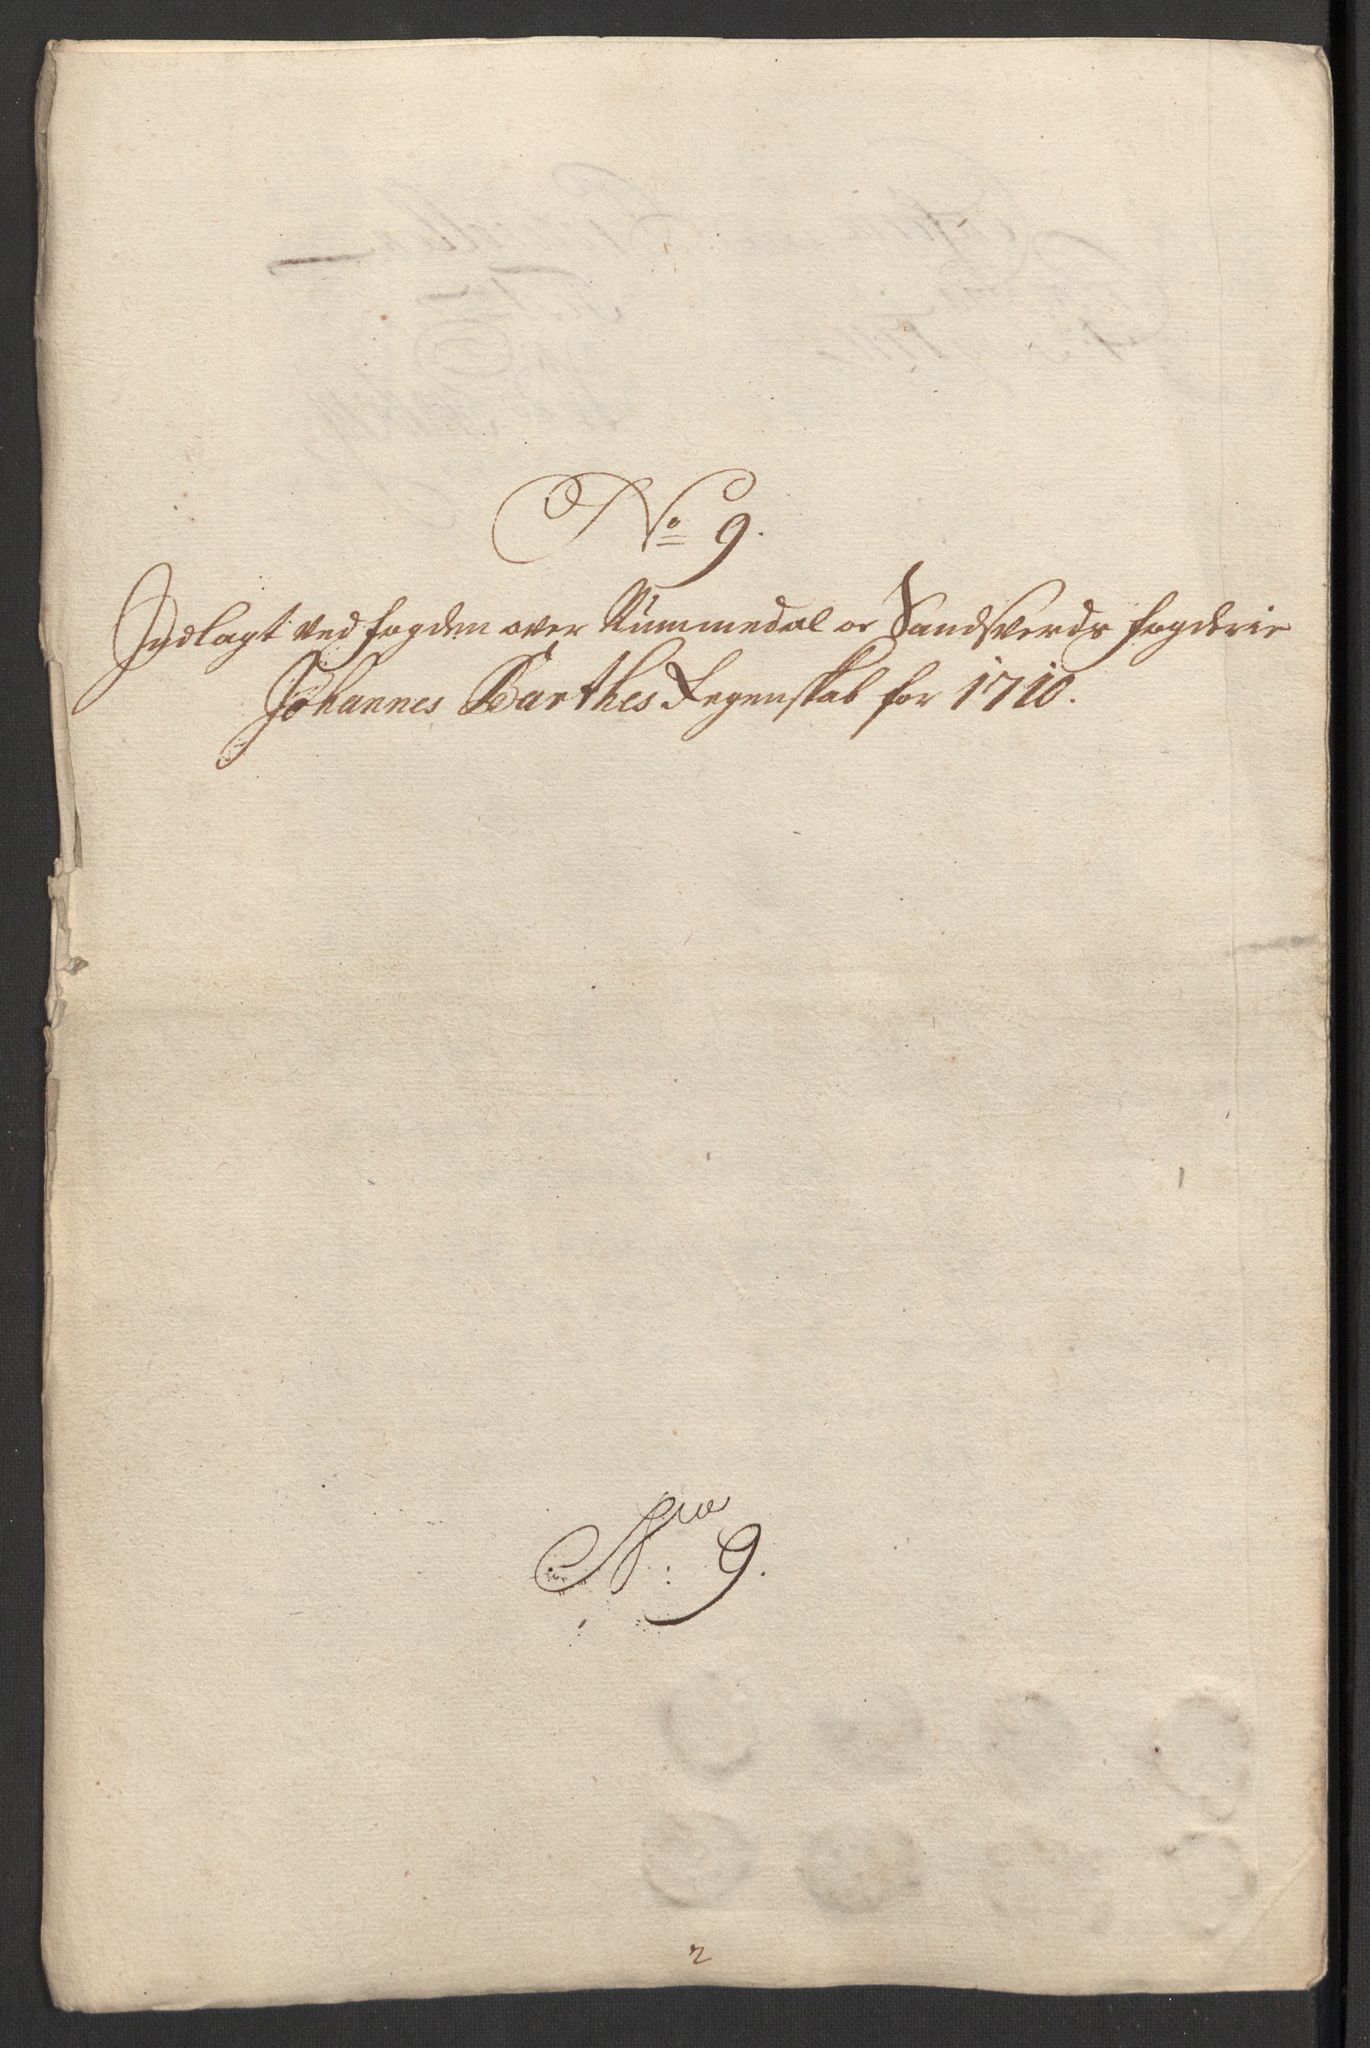 No 9.
Indlagt ved fogden over Nummedal oc Sandsverds fogderie
Johannes Barthes Regenskab for 1710.
Nro 9.
2